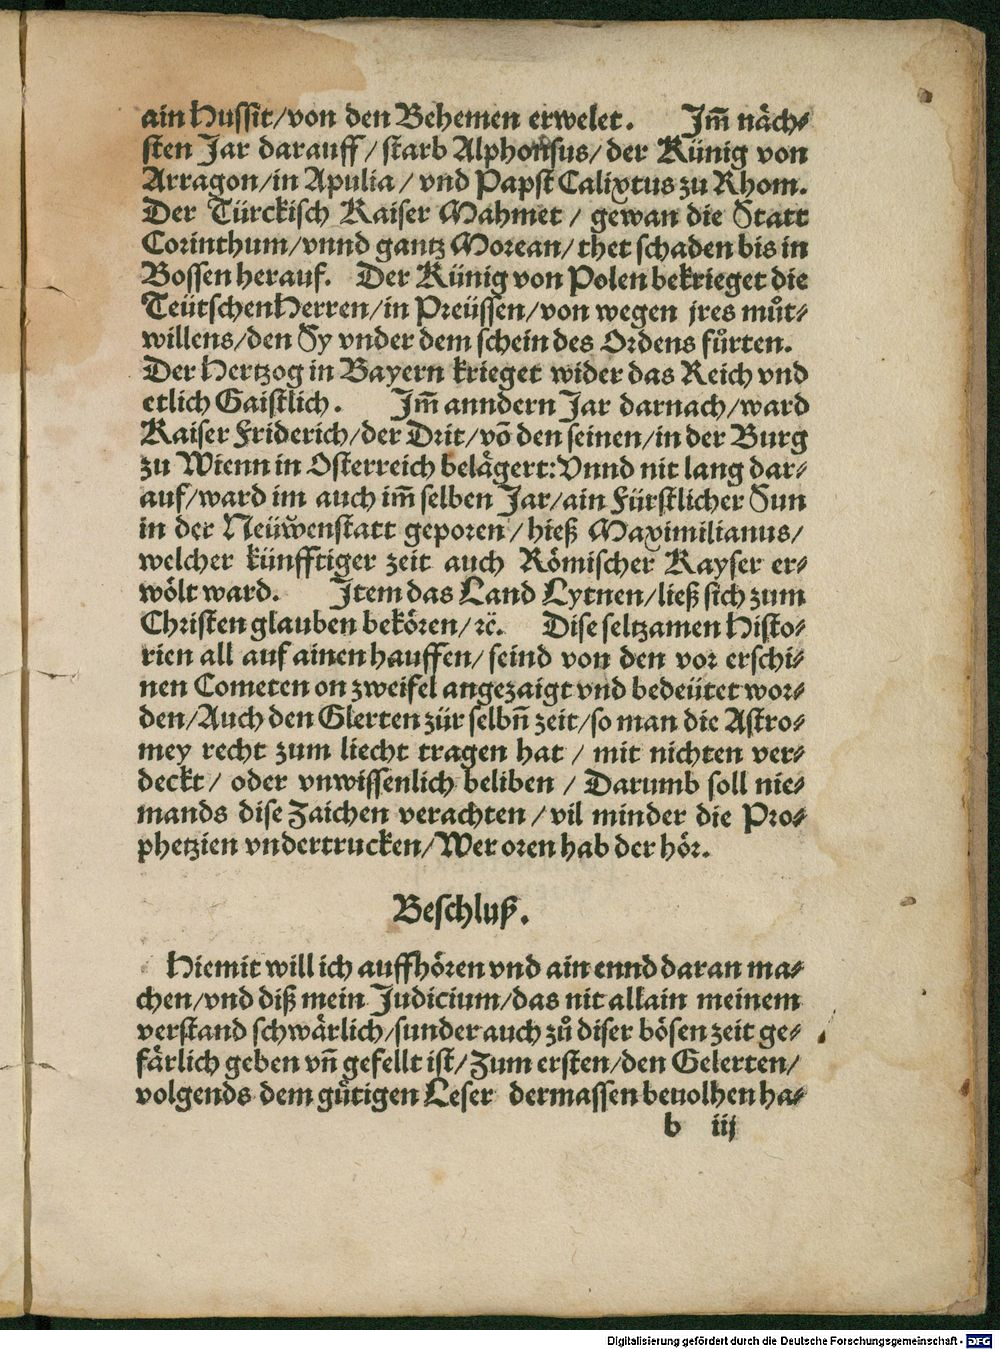 ain Hussit/von den Behemen erwelet. Im̃ näch⸗
sten Jar darauff/ starb Alphonsus/ der Künig von
Arragon/in Apulia/ vnd Papst Calixtus zu Rhom.
Der Türckisch Kaiser Mahmet/ gewan die Statt
Corinthum/vnnd gantz Morean/ thet schaden bis in
Bossen herauf. Der Künig von Polen bekrieget die
Teütschen Herren/in Preüssen/von wegen jres můt⸗
willens/den Sy vnder dem schein des Ordens fůrten.
Der Hertzog in Bayern krieget wider das Reich vnd
etlich Gaistlich. Im̃ anndern Jar darnach/ward
Kaiser Friderich/der Drit/võ den seinen/in der Burg
zu Wienn in Osterreich belägert: Vnnd nit lang dar⸗
auf/ward im auch im̃ selben Jar/ain Fürstlicher Sun
in der Neüwenstatt geporen/ hieß Maximilianus/
welcher künfftiger zeit auch Römischer Kayser er⸗
wölt ward. Item das Land Lytnen/ließ sich zum
Christen glauben bekören/ ꝛc̈. Dise seltzamen Histo⸗
rien all auf ainen hauffen/ seind von den vor erschi⸗
nen Cometen on zweifel angezaigt vnd bedeütet wor⸗
den/Auch den Glerten zür selbñ zeit/so man die Astro⸗
mey recht zum liecht tragen hat/ mit nichten ver⸗
deckt/ oder vnwissenlich beliben/ Darumb soll nie⸗
mands dise Zaichen verachten/vil minder die Pro⸗
phetzien vndertrucken/Wer oren hab der hör.
Beschluß.
Hiemit will ich auffhören vnd ain ennd daran ma⸗
chen/vnd diß mein Judicium/das nit allain meinem
verstand schwärlich/sunder auch zů diser bösen zeit ge⸗
färlich geben vñ gefellt ist/ Zum ersten/den Gelerten/
volgends dem gůtigen Leser dermassen beuolhen ha⸗
b iij
Digitalisierung gefördert durch die Deutsche Forschungsgemeinschaft - DFG